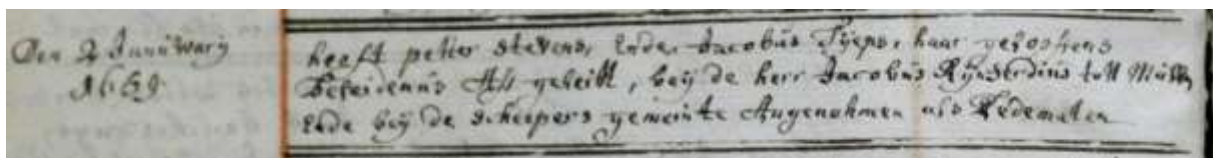 Den 2 Januwarij
1669
heeft petter Stevens, Ende Jacobus Tijeps, haar geloofens
bekeidenus Af geleitt, beij de herr Jacobus tott
Ende beij de scheepers gemeinte Angenohmen als Ledematen